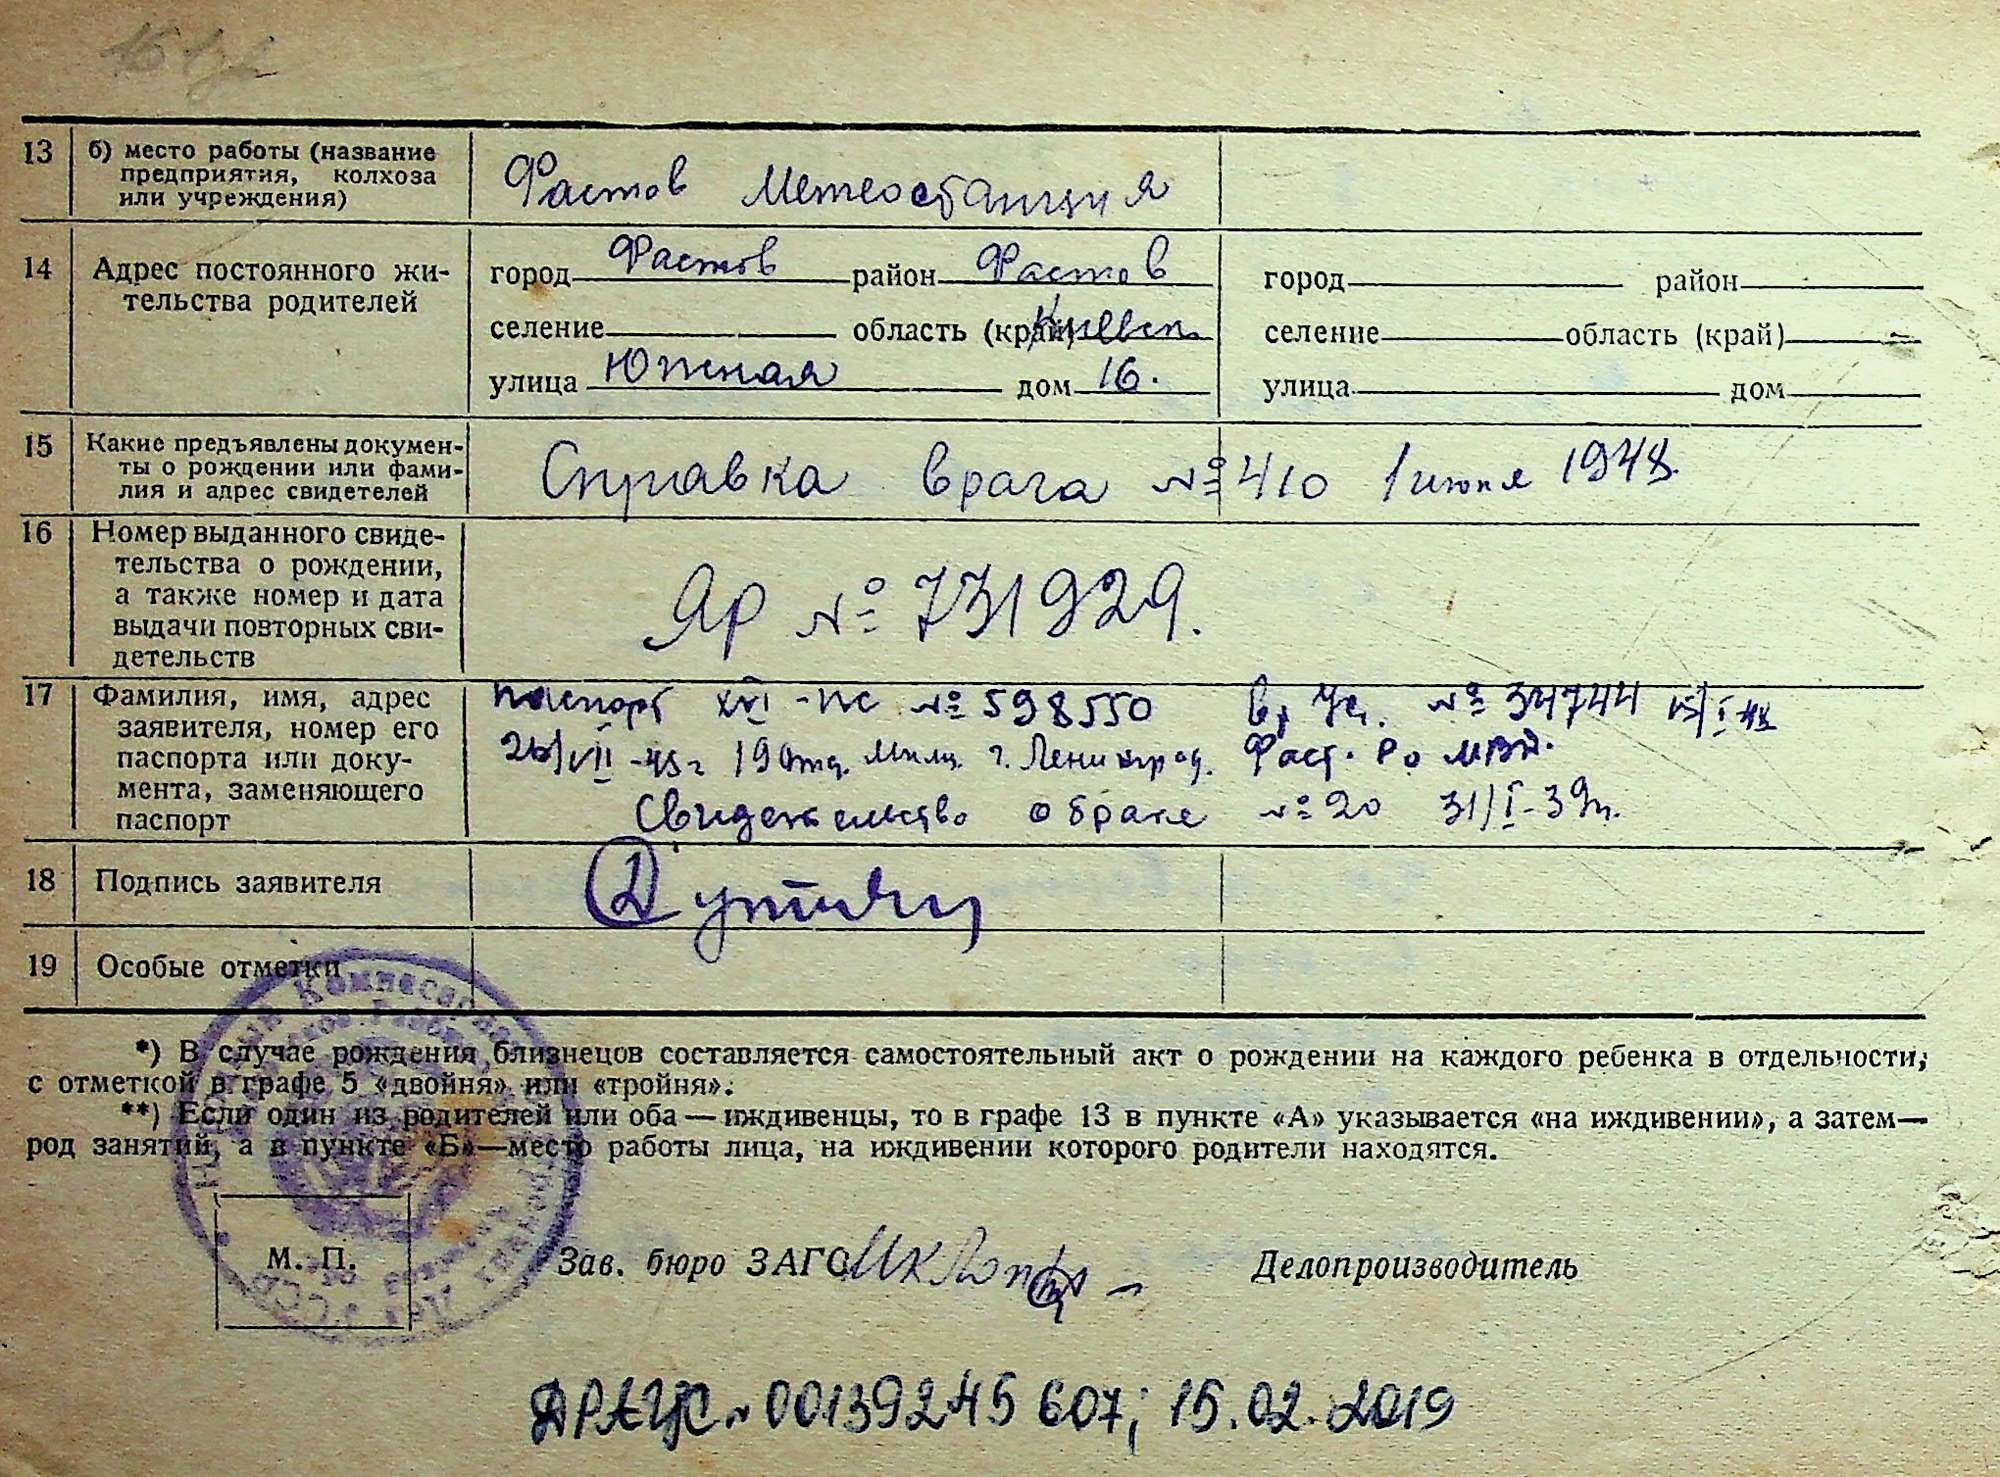 13 б) место работы (название
предприятия, колхоза
или учреждения)
Фастов Метеостанция
14 Адрес постоянного жи-
тельства родителей
город Фастов район Фастов
селение область (край) Киевск.
улица Южная дом 16.
город район
селение область (край)
улица дом
15 Какие предъявлены докумен-
ты о рождении или фами-
лия и адрес свидетелей
Справка врача № 410 1 июня 1948.
16 Номер выданного свиде-
тельства о рождении,
а также номер и дата
выдачи повторных сви-
детельств
ЯР № 731929.
17 Фамилия, имя, адрес
заявителя, номер его
паспорта или доку-
мента, заменяющего
паспорт
паспорт XVI-ПС № 598550 № 34744
19 отд. Милиц. г. Ленинград. Фаст. Ро МВД.
Свидетельство о браке № 20 31/I-39г.
18 Подпись заявителя
19 Особые отметки
*) В случае рождения близнецов составляется самостоятельный акт о рождении на каждого ребенка в отдельности,
с отметкой в графе 5 «двойня» или «тройня».
**) Если один из родителей или оба — иждивенцы, то в графе 13 в пункте «А» указывается «на иждивении», а затем—
род занятий, а в пункте «Б»—место работы лица, на иждивении которого родители находятся.
М. П.
Зав. бюро ЗАГС
Делопроизводитель
ДРАЦС 00139245607; 15.02.2019